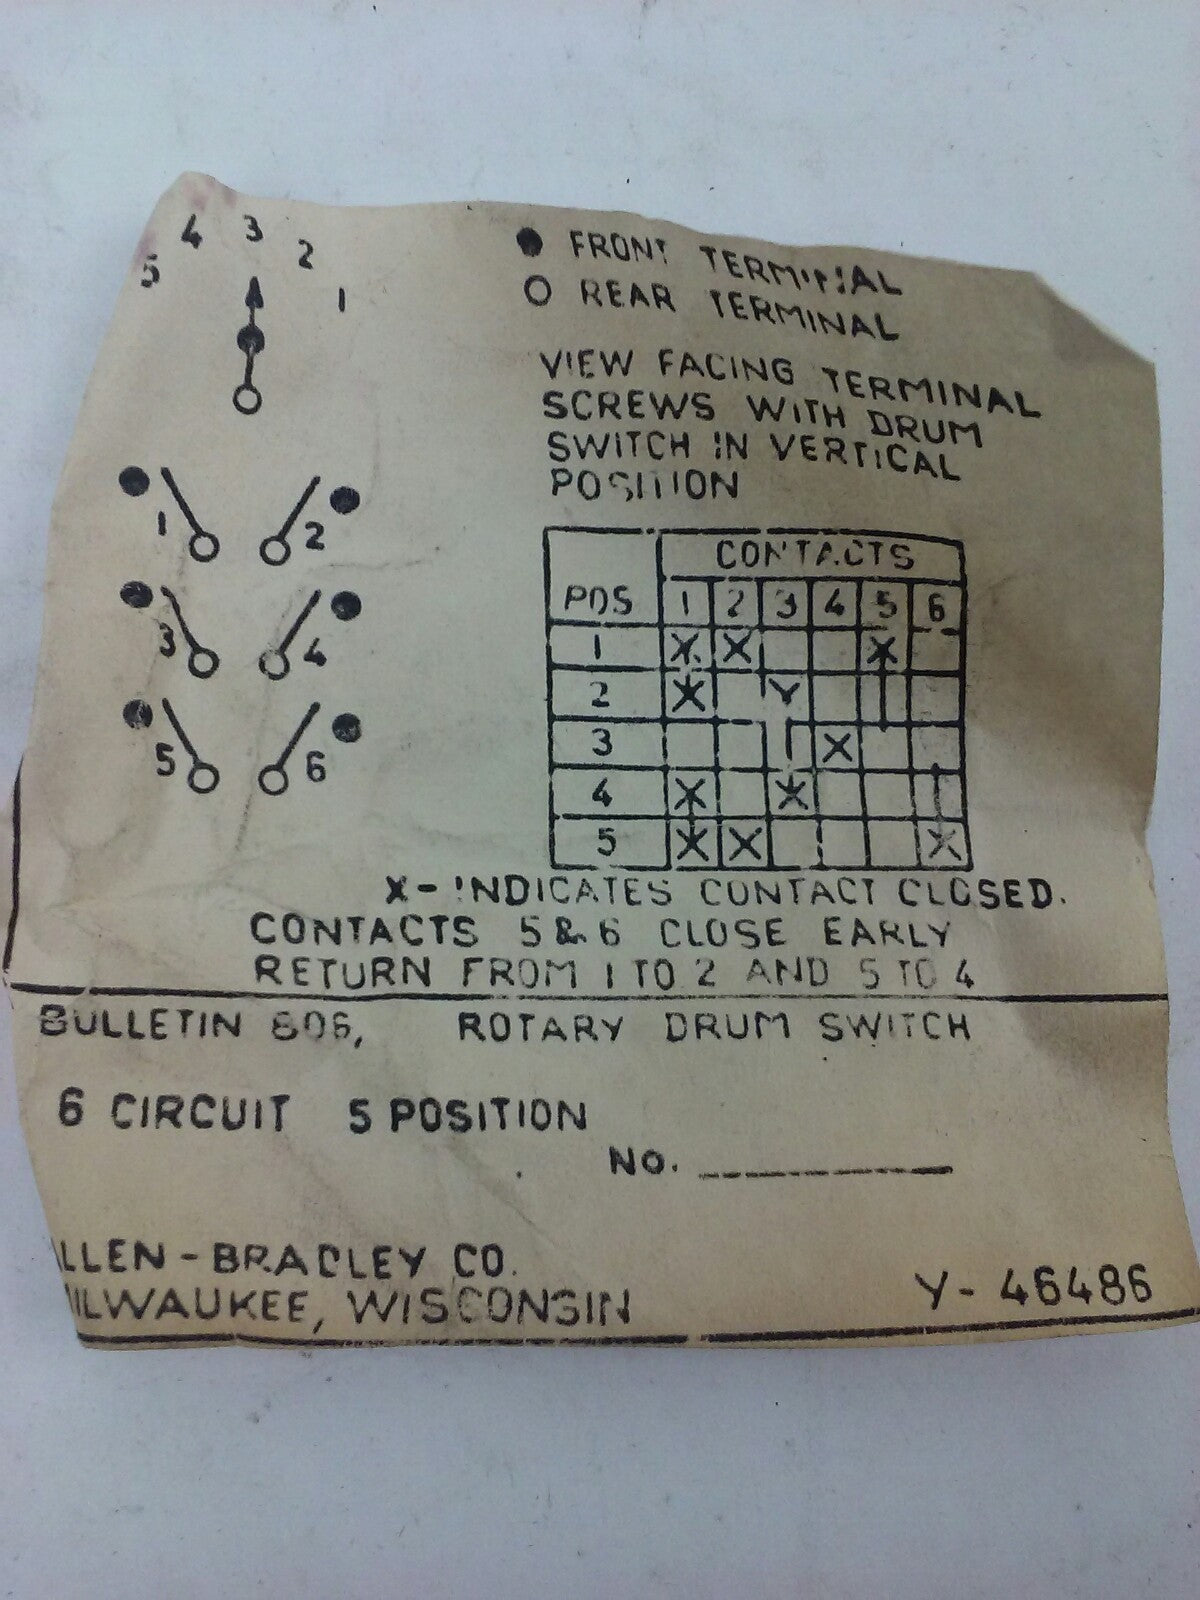 4 3 2
5 1
● FRONT TERMINAL
○ REAR TERMINAL
VIEW FACING TERMINAL
SCREWS WITH DRUM
SWITCH IN VERTICAL
POSITION
1 2
3 4
5 6
CONTACTS
POS 1 2 3 4 5 6
1 X X X
2 X X
3 X
4 X X
5 X X X
X- INDICATES CONTACT CLOSED.
CONTACTS 5 & 6 CLOSE EARLY
RETURN FROM 1 TO 2 AND 5 TO 4
BULLETIN 806, ROTARY DRUM SWITCH
6 CIRCUIT 5 POSITION
NO.
LLEN-BRADLEY CO.
ILWAUKEE, WISCONSIN
Y-46486